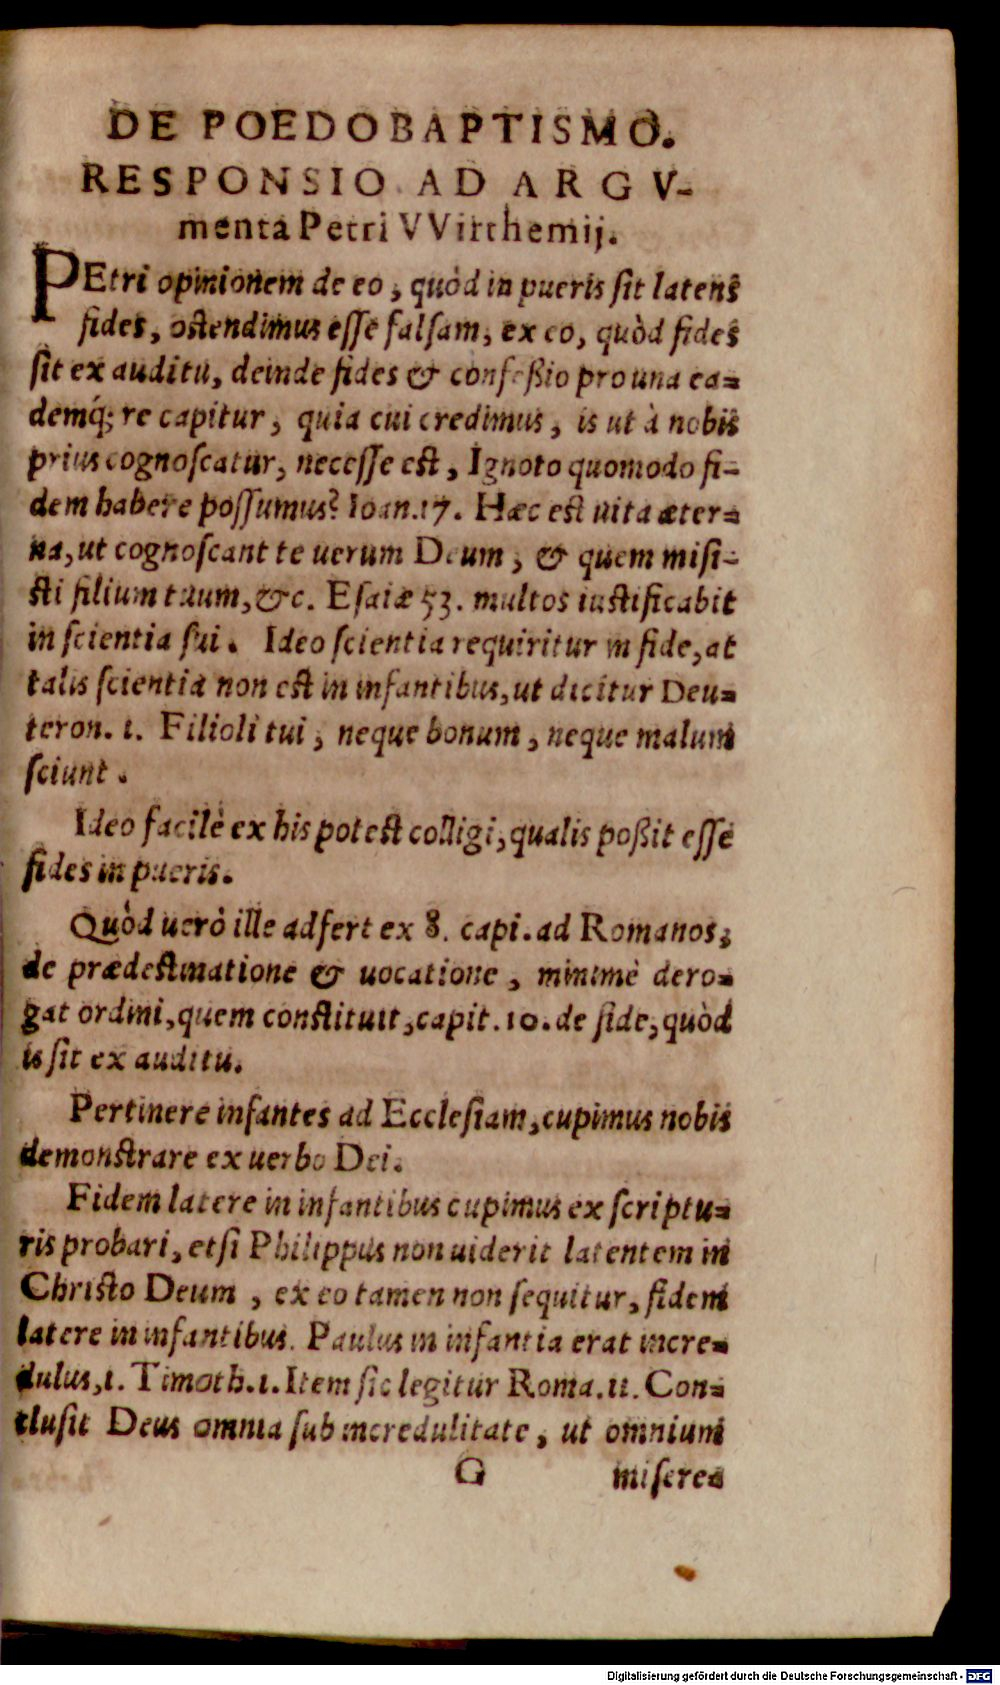 DE POEDOBAPTISMO.
RESPONSIO AD ARGV-
menta Petri VVirthemij.
PEtri opinionem de eo, quòd in pueris ſit latens
fides, oſtendimus eſſe falſam, ex eo, quòd fides
ſit ex auditu, deinde fides & confeßio pro una ea-
demq́; re capitur, quia cui credimus, is ut à nobis
prius cognoſcatur, neceſſe eſt, Ignoto quomodo fi-
dem habere poſſumus? Ioan.17. Hæc eſt uita æter-
na, ut cognoſcant te uerum Deum, & quem miſi-
ſti filium tuum, &c. Eſaiæ 53. multos iuſtificabit
in ſcientia ſui. Ideo ſcientia requiritur in fide, at
talis ſcientia non eſt in infantibus, ut dicitur Deu-
teron. 1. Filioli tui, neque bonum, neque malum
ſciunt.
Ideo facilè ex his poteſt colligi, qualis poßit eſſe
fides in pueris.
Quòd uerò ille adfert ex 8. capi. ad Romanos,
de prædeſtinatione & uocatione, minimè dero-
gat ordini, quem conſtituit, capit. 10. de fide, quòd
is ſit ex auditu.
Pertinere infantes ad Eccleſiam, cupimus nobis
demonſtrare ex uerbo Dei.
Fidem latere in infantibus cupimus ex ſcriptu-
ris probari, etſi Philippus non uiderit latentem in
Chriſto Deum, ex eo tamen non ſequitur, fidem
latere in infantibus. Paulus in infantia erat incre-
dulus, 1. Timoth. 1. Item ſic legitur Roma. 11. Con-
cluſit Deus omnia ſub incredulitate, ut omnium
G miſere-
Digitalisierung gefördert durch die Deutsche Forschungsgemeinschaft - DFG